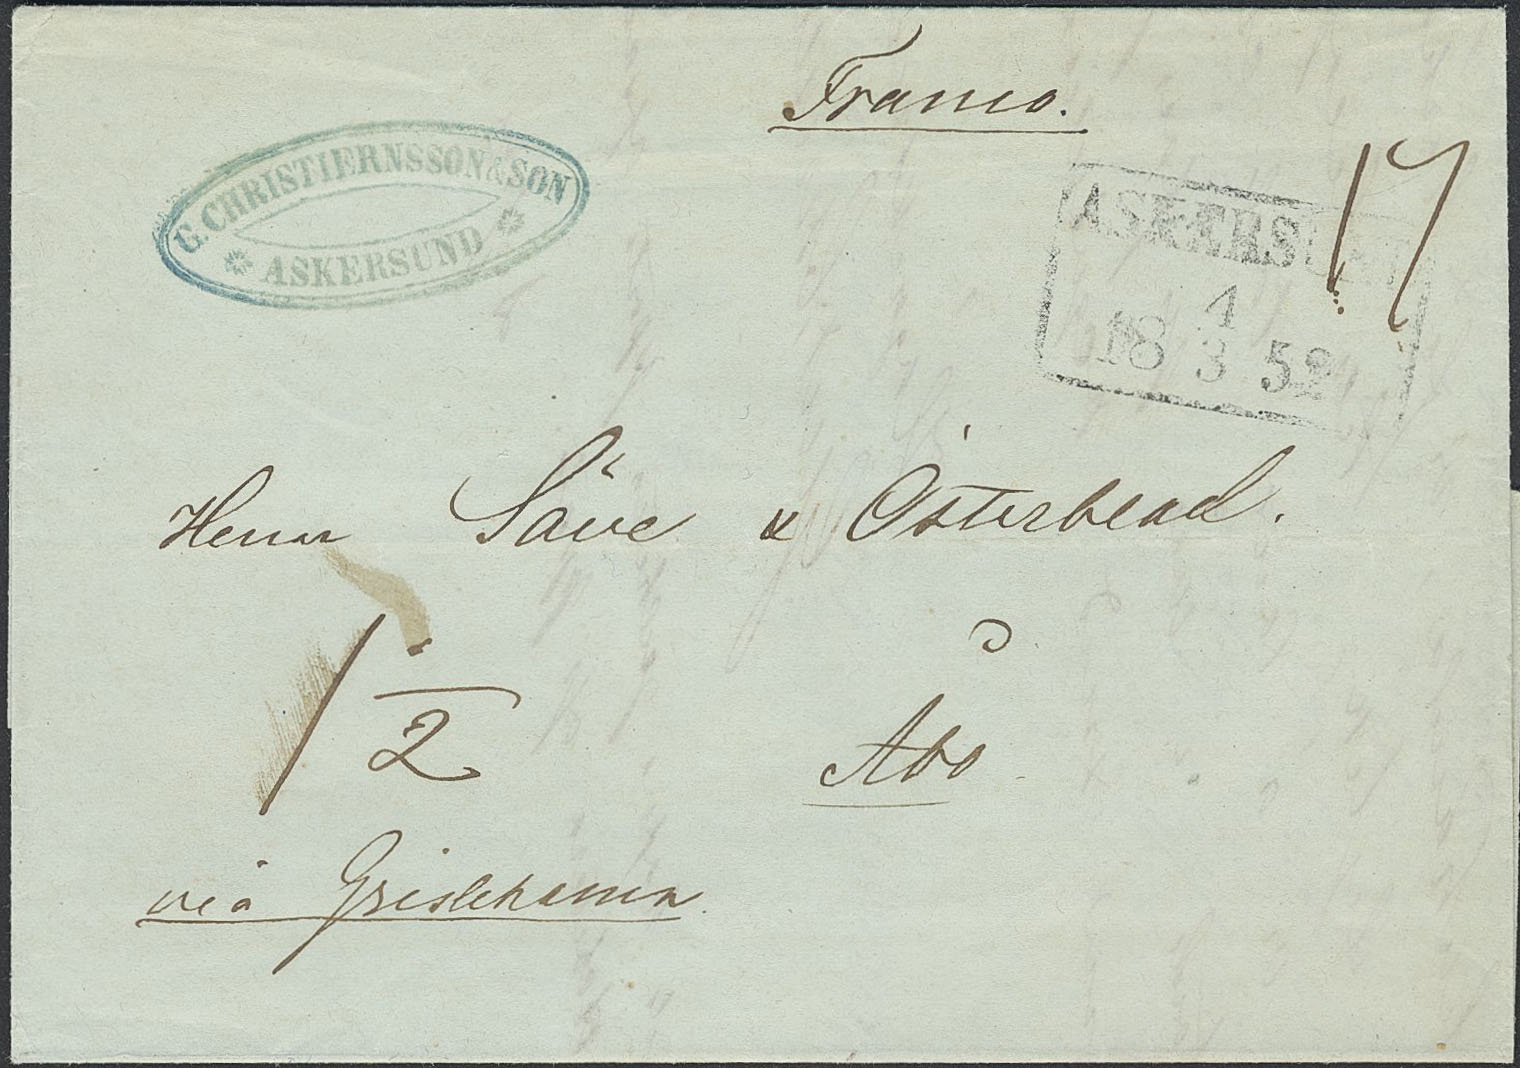 Franco.
G. CHRISTIERNSSON & SON
ASKERSUND
17
ASKERSUND
1
18 3 52
Herrar Säve & Österblad.
1/2
Åbo
via Grislehamn